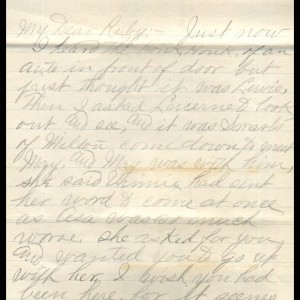 My Dear Ruby:- Just now
I heard the honk, honk, of an
auto in front of door but
just thought it was Lewis,
then I asked Lucerne to look
out and see, and it was Swarts
of Milton come down to meet
May, and May was with him,
she said Minnie had sent
her word to come at once
as Lisa was so much
worse. she asked for you
and wanted you to go up
with her, I wish you had
been here for it seems